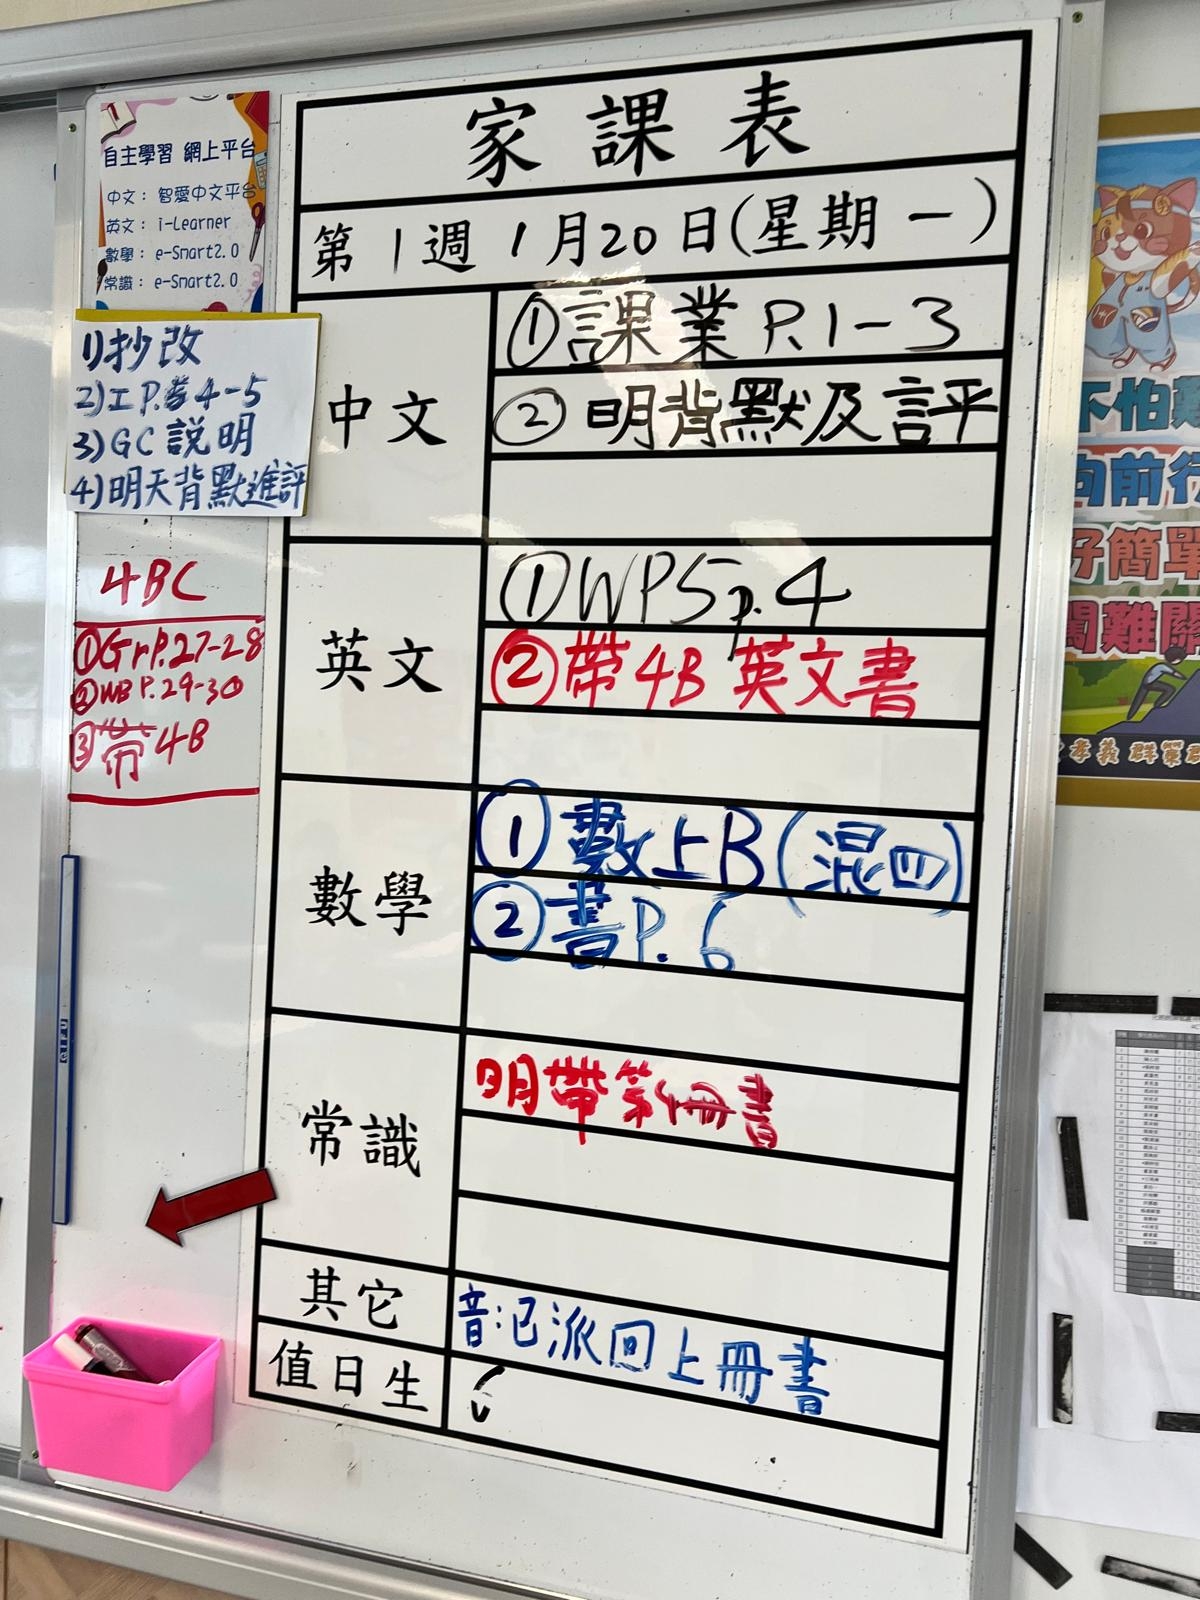 自主學習 網上平台
中文： 智愛中文平台
英文： i-Learner
數學： e-Smart2.0
常識： e-Smart2.0
1)抄改
2)工P.4-5
3)GC 說明
4)明天背默進評
4BC
①GrP.27-28
②WB P.29-30
③帶4B
家課表
第1週 1月20日(星期一)
中文
①課業 P.1-3
②明背默及評
英文
①WP5 p.4
②帶4B英文書
數學
①數上B(混四)
②書P.6
常識
明帶第冊書
其它
音:已派回上冊書
值日生
6
不怕難
向前行
好簡單
闖難關
孝義群策群